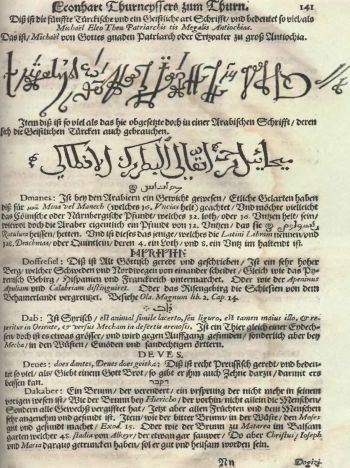 Leonhart Thurneyssers zum Thurn. 141
Diß ist die fünffte Türckische und ein Geistliche art Schrifft/ und bedeutet so viel/als
Michaêl Eleo Theu Patriarchis tis Megalis Antiochias.
Das ist/ Michael von Gottes gnaden Patriarch oder Ertzvater zu groß Antiochia.
Item diß ist so viel als das hie obgesetzte doch in einer Arabischen Schrifft/ deren
sich die Geistlichen Türcken auch gebrauchen.
ميخائيل البطرك الانطاكي
Dmanes: Ist bey den Arabiern ein Gewicht gewesen/ Etliche Gelarten haben
diß für Mena vel Manech (welches 36. Vncias helt) geachtet/ Und möchte vielleicht
das Cöinische oder Nürnbergische Pfundt/ welches 32. loth/ oder 16. Vntzen helt/ sein/
wiewol doch die Araber eigentlich ein Pfundt von 12. Vntzen/ das sie
Ratulura heissen/ hetten. Und ist dieses das jenige/ welches die Latini Libram nennen/ und
96. Drachmas/ oder Quintlein/ deren 4. ein Loth/ und 8. ein Vntz im haltendt ist.
Doffefiel: Diß ist Alt Götisch geredt und geschrieben/ Ist ein sehr hoher
Berg/ welcher Schweden und Norwegen von einander scheidet/ Gleich wie das Py-
renesch Gebirg/ Hispanien und Franckreich untermarchet. Oder wie der Apenninus
Apuliam und Calabriam distinguiret. Oder das Risengebirg die Schlesien von dem
Behamerlandt vergrentzet. Besiehe Ola. Magnum lib. 2. Cap. 14.
Dab: Ist Syrisch/ est animal simile lacerto, seu liguro, est tamen maius illo, & re-
peritur in Oriente, & versus Mecham in desertis arenosis. Ist ein Thier gleich einer Eydech-
sen/ doch ist es etwas grösser/ und wird gegen Auffgang gefunden/ sonderlich aber bey
Mecha/ in den Wüsten/ Einöden und sandechtigen örttern.
DEVES.
Deues: dara dantes, Deues does geitka: Diß ist recht Preussisch geredt/ und bedeu-
tet so viel/ als/ Giebt einem Gott Brot/ so gibt er ihm auch Zehne darzu/ damit ers
beissen kan.
Dakaber: Ein Brunn/ der verendert/ ein ursprung der nicht mehr in seinem
vorigen wesen ist/ Wie der Brunn bey Hiericho/ der vorhin/ nicht allein die Menschen/
Sondern alle Gewechß vergifftet hat/ Jetzt aber allen Früchten und dem Menschen
sehr angenehm und gesundt ist. Item/ wie der bitter Brunn/ in der Wüsten/ den Moses
gut und gesundt machet/ Exod. 15. Oder wie der Brunn zu Matarea im Balsam
garten welcher 45. stadia von Alkeyr/ der etwan gar sauwer/ Do aber Christus/ Ioseph
und Maria daraus getruncken haben/ sol er gut und heilsam worden sein.
Nn Dogizi-